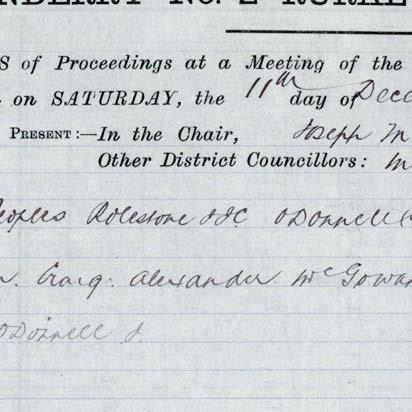 NDERRY No. 2 RURAL
S of Proceedings at a Meeting of the
on SATURDAY, the 11th day of Dece
PRESENT:—In the Chair, Joseph M
Other District Councillors: M
eoples Rolestone J.J.C. O'Donnell
Craig. Alexander. McGowan
O'Donnell J.